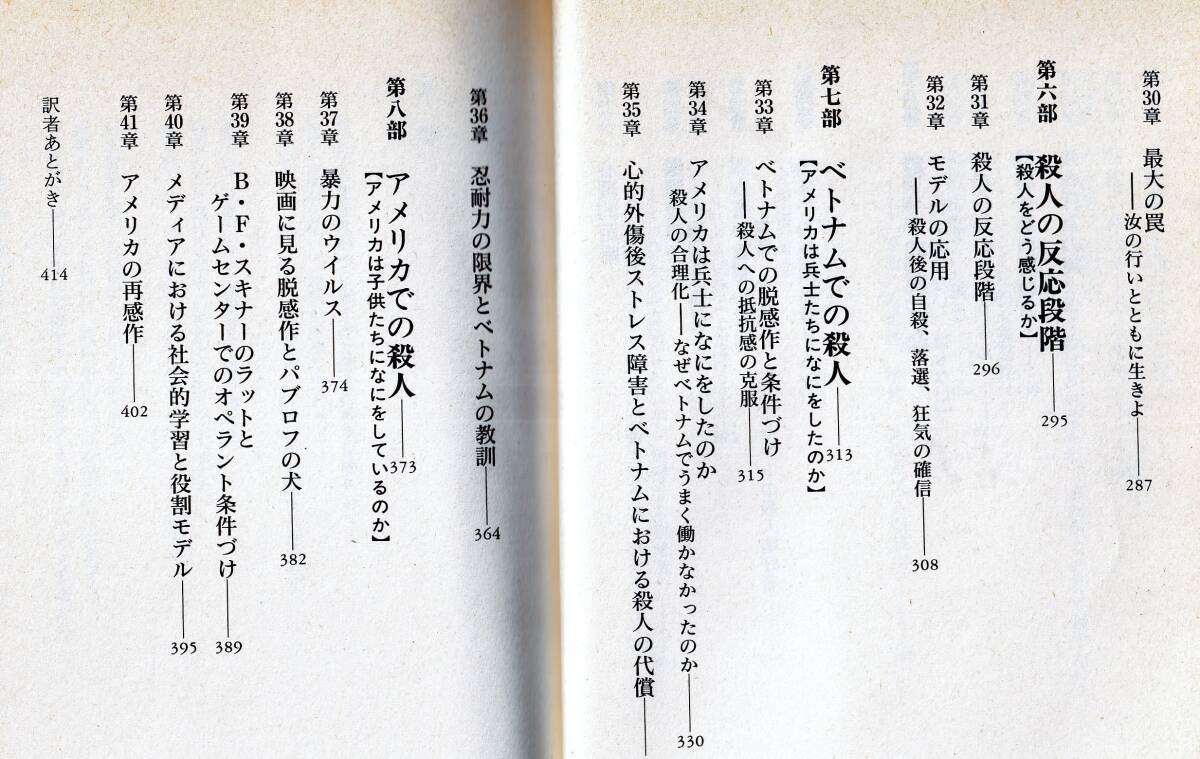 第30章 最大の罠
――汝の行いとともに生きよ――287
第六部 殺人の反応段階――295
【殺人をどう感じるか】
第31章 殺人の反応段階――296
第32章 モデルの応用
――殺人後の自殺、落選、狂気の確信――308
第七部 ベトナムでの殺人――313
【アメリカは兵士たちになにをしたのか】
第33章 ベトナムでの脱感作と条件づけ
――殺人への抵抗感の克服――315
第34章 アメリカは兵士になにをしたのか
殺人の合理化――なぜベトナムでうまく働かなかったのか――330
第35章 心的外傷後ストレス障害とベトナムにおける殺人の代償――
第36章 忍耐力の限界とベトナムの教訓――364
第八部 アメリカでの殺人――373
【アメリカは子供たちになにをしているのか】
第37章 暴力のウイルス――374
第38章 映画に見る脱感作とパブロフの犬――382
第39章 B・F・スキナーのラットと
ゲームセンターでのオペラント条件づけ――389
第40章 メディアにおける社会的学習と役割モデル――395
第41章 アメリカの再感作――402
訳者あとがき――414